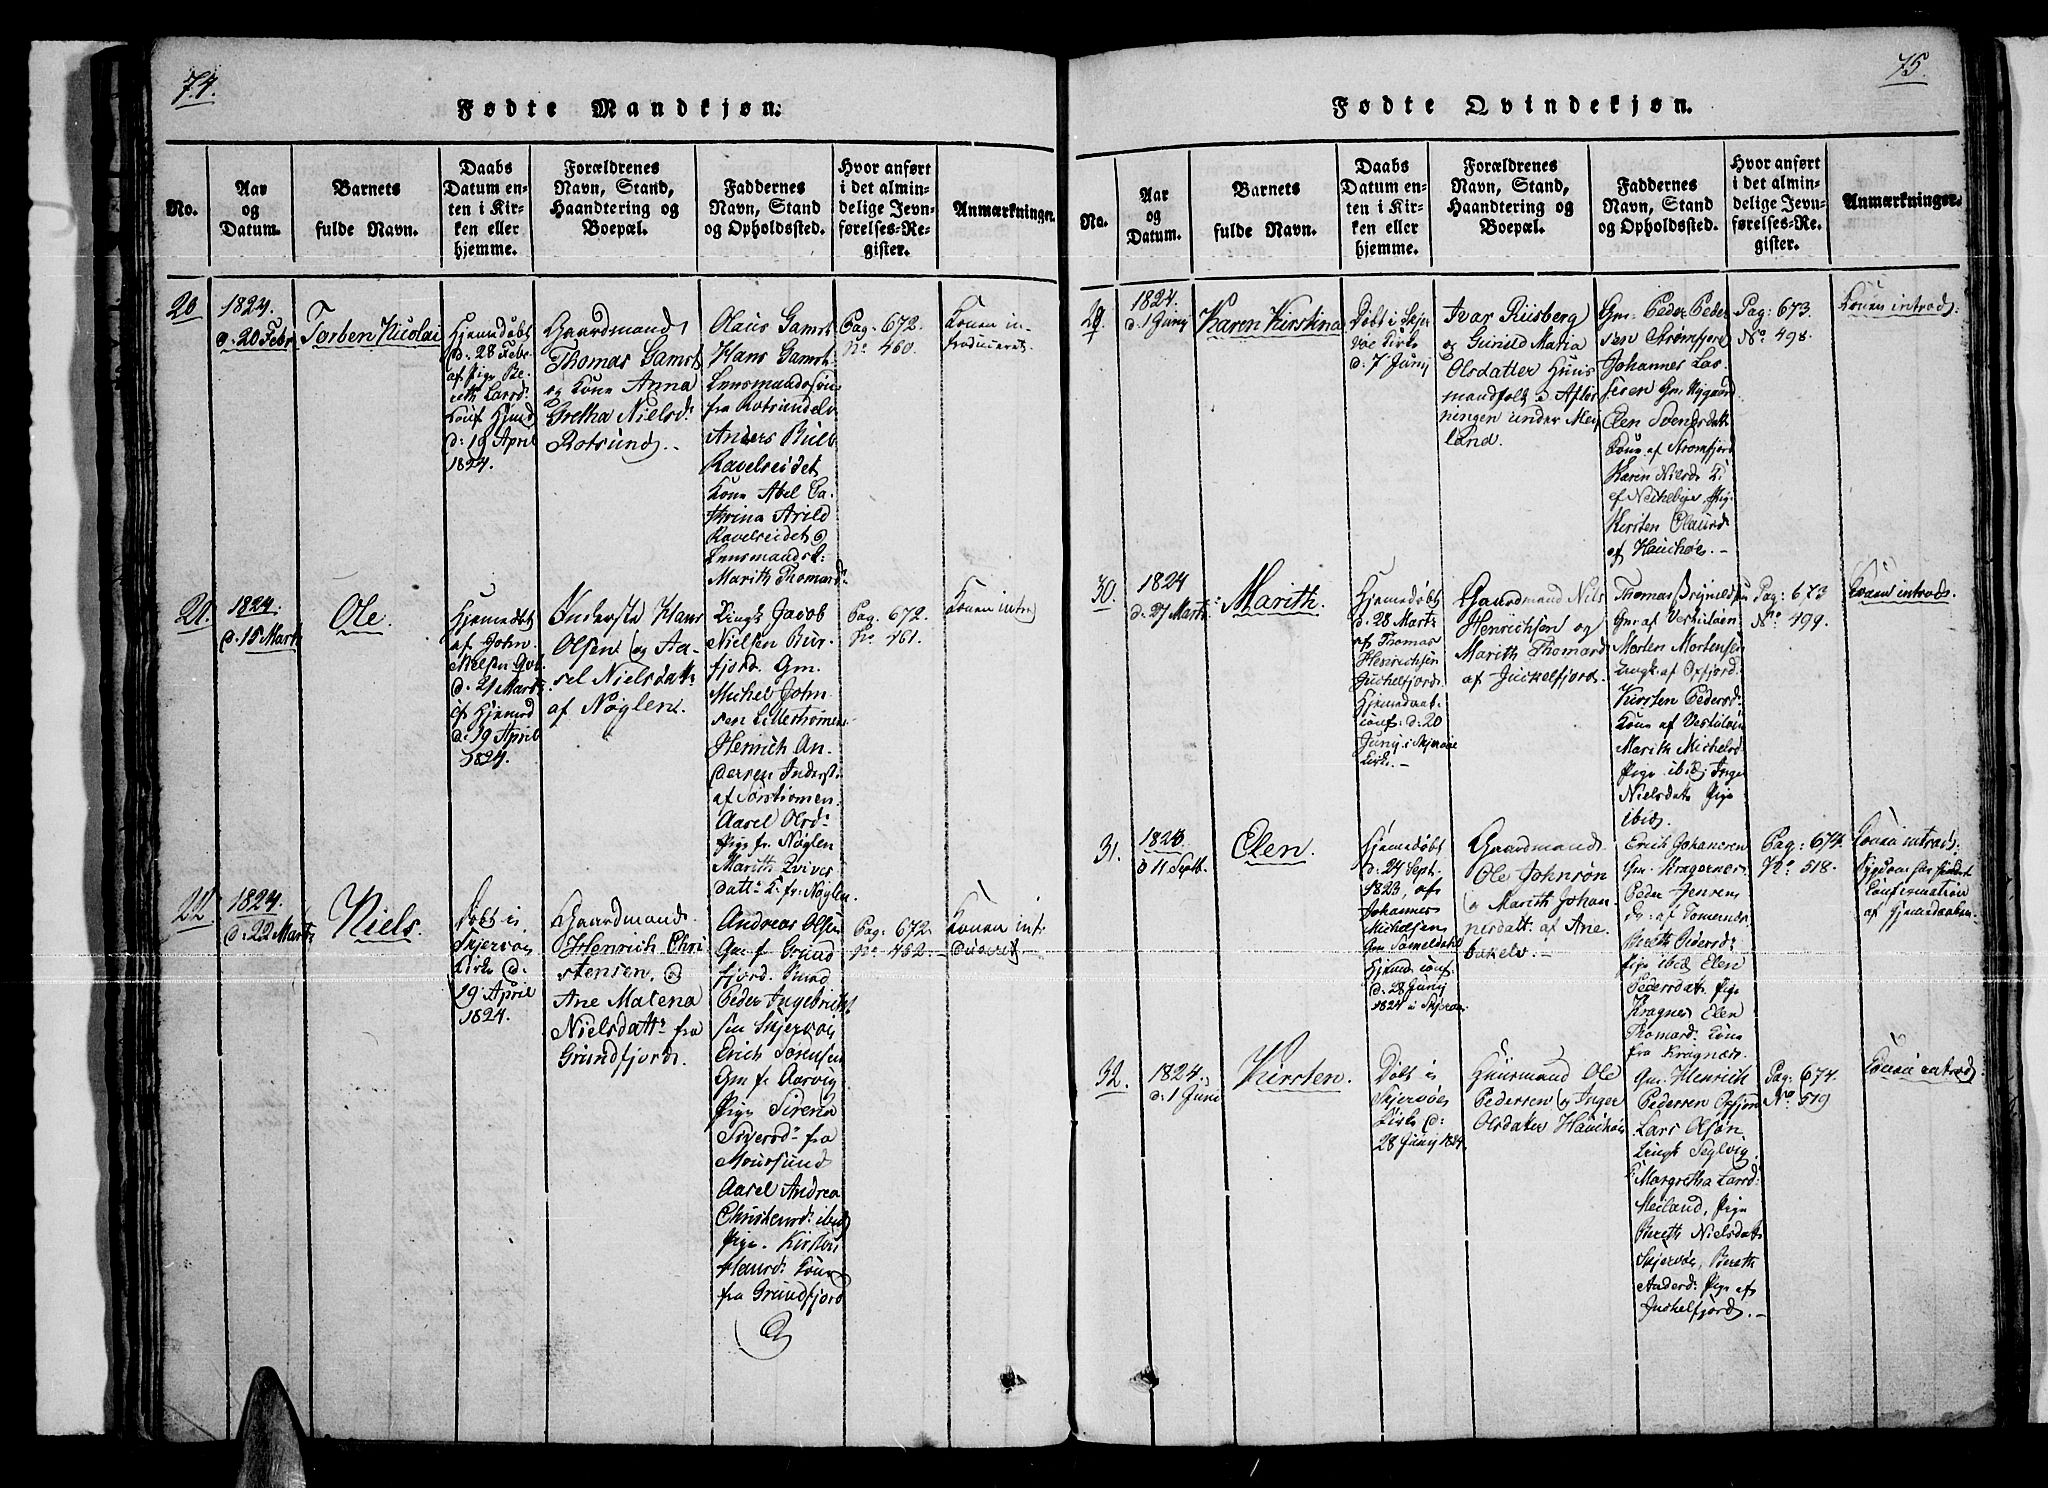 74.
Fødte Mandkjøn.
No.
Aar
og
Datum.
Barnets
fulde Navn.
Daabs
Datum en-
ten i Kir-
ken eller
hjemme.
Forældrenes
Navn, Stand,
Haandtering og
Boepæl.
Faddernes
Navn, Stand
og Opholdssted.
Hvor anført
i det almin-
delige Jevn-
førelses-Re-
gister.
Anmærkninger.
20
1824.
d. 20 Febr
Torben Nicolai
Hjemedøbt
d. 28 Febr
af Pige Be-
reth Larsd:
d: 19 April
1824.
Gaardmand
Thomas Gamst
og Kone Anna
Gretha Nielsd:
Rotsund.-
Olaus Gamst
Hans Gamst
Lensmandssøn
fra Rotsundelv
Anders Bull
Ravelseidet
Kone Abel Ca-
thrina Arild
Ravelseidet
Lensmandsk:
Marith Thomasd:
Pag: 672.
No. 460.
Konen in-
troduceret
1824.
d. 15 Marts
Ole
Hjemedøbt
af John
Nielsen
d. 21 Marts
d: 19 April
1824.
Inderste Hans
Olsen og Aa-
sel Nielsdatt:
af Nøglen.
Ungk. Jacob
Nielsen Bur-
fjord. Gm.
Michel John-
sen Lillestrømmen
Henrich An-
dersen Inderst
af Sørstrømmen.
Aasel Olsd:
Pige fr. Nøglen
Marith
datt: K. fr. Nøglen
Pag: 672.
No. 461.
Konen introd
22.
1824.
d. 22 Marts
Niels.
Døbt i
Skjervøe
Kirke d:
19 April
1824.
Gaardmand
Henrich Chri
stensen, og
Ane Malena
Nielsdatt: fra
Grundfjord.
Andreas Olsen
Gm. f. Grund
fjord.
Peder Ingebrigt
sen Skjervøe
Erich Sørensen
Gm fr Aarvig
Pige Sirena
Siversd: fra
Maursund
Aasel Andrea
Christensd: ibid
Pige. Kirsten
Hansd: Kone
fra Grundfjord
Pag: 672.
No. 462.
Konen intr
duceret
75.
Fødte Qvindekjøn.
No.
Aar
og
Datum.
Barnets
fulde Navn.
Daabs
Datum en-
ten i Kir-
ken eller
hjemme.
Forældrenes
Navn, Stand,
Haandtering og
Boepæl.
Faddernes
Navn, Stand
og Opholdssted.
Hvor anført
i det almin-
delige Jevn-
førelses-Re-
gister.
Anmærkninger.
29
1824.
d. 1 Junij
Karen Kirstina
Døbt i Skjer
vøe Kirke
d. 7 Junij
Ivar Riisberg
og Gunild Maria
Olsdatter Huus
mandfolk i Afløs
ningen under Mei
land.
Gm: Peder Peder
sen Strømfjord
Johannes Las-
sesen Gm Nygaard
Elen Svendsdatt
Kone af Strømfjord
Karen Nielsd: K:
Kirsten Olausd:
af Hauchøe.-
Pag: 673.
No. 498.
Konen introd:
30.
1824
d. 27 Marts:
Marith.
Hjemedøbt
d. 28 Marts
af Thomas
Henrichsen
Juckelfjord
Hjemedaab
conf: d: 20
Junij i Skjervøe
Kirke.-
Gaardmand Nils
Henrichsen og
Marith Thomasd
af Juckelfjord.
Thomas Brynildsen
Gm: af
Morten Mortensen
Ungk. af Oxfjord.
Kirsten Pedersd:
Kone af
Marith Michelsd
Pige ibid, Inger
Nielsdatt: Pige
ibid.
Pag: 673
No. 499.
Konen introd:
31.
1823.
d 11 Septb.
Elen.
Hjemedøbt
d: 24 Sept.
1823, af
Johannes
Michelsen
Gm
Hjemd conf.
d. 28 Junij
1824 i Skjervøe
Gaardmand
Ole Johnsøn
og Marith Johan
nesdatt: af Ane
bakelv.-
Erich Johannesen
Gm. Kragernes
Peder Jensen
d: af Tømernes
Bereth Pedersd:
Pige ibid Elen
Pedersdatt: Pige
Kragnes Elen
Thomasd: Kone
fra Kragnæs.
Pag: 674.
No. 518.
Konen introd:
Confirmation
af Hjemedaaben
32.
1824.
d. 1 Juni
Kirsten.
Døbt i
Skjervøe
Kirke d:
28 Junij 1824.
Huusmand Ole
Pedersen og Inger
Olsdatter Hauchøe
Gm: Henrich
Pedersen Oxfjord
Lars Olsøn
Ungk Seglvig.
K: Margretha Larsd:
Meiland, Pige
Bereth Nielsdatt:
Skjervøe, Bereth
Andersd: Pige af
Juckelfjord.-
Pag: 674.
No 519
Konen introd: